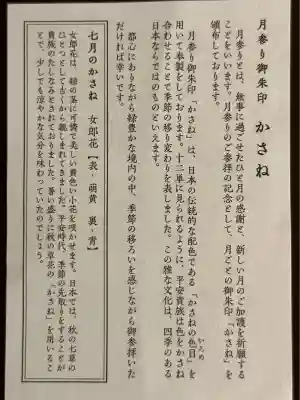 月参り御朱印　かさね
月参りとは、無事に過ごせたひと月の感謝と、新しい月のご加護を祈願する
ことをいいます。月参りのご参拝の記念として、月ごとの御朱印「かさね」を
頒布しております。
月参り御朱印「かさね」は、日本の伝統的な配色である「かさねの色目」を
いろめ
用いて奉製をしております。十二単に見られるように、平安貴族は色をかさね
合わせることで季節の移り変わりを表しました。この雅な文化は、四季のある
日本ならではのものといえます。
都心にありながら緑豊かな境内の中、季節の移ろいを感じながら御参拝いた
だければ幸いです。
七月のかさね　女郎花【表・萌黄　裏・青】
女郎花は、緑の茎に可憐で美しい黄色い小花を咲かせます。日本では、秋の七草の
ひとつとして古くから親しまれてきました。平安時代、季節の先取りをすることが
貴族のたしなみとされておりました。暑い盛りに秋の草花の「かさね」を用いるこ
とで、少しでも涼やかな気分を味わっていたのでしょう。